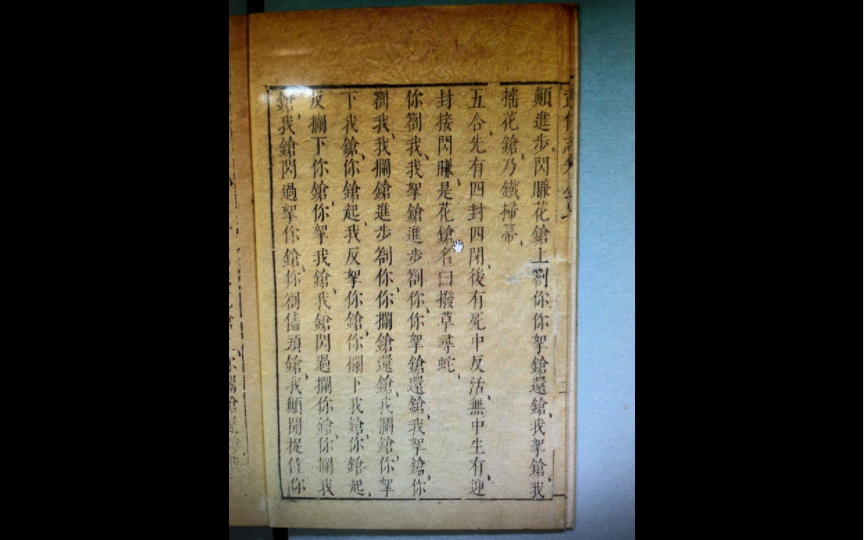 顛進步閃賺花鎗上劄你你拏鎗還鎗我拏鎗我
搖花鎗乃鐵掃箒
五合先有四封四閉後有死中反活無中生有迎
封接閃賺是花鎗名曰撥草尋蛇
你劄我我拏鎗進步劄你你拏鎗還鎗我拏鎗你
劄我我攔鎗進步劄你你攔鎗還鎗我攔鎗你拏
下我鎗你鎗起我反拏你鎗你攔下我鎗你鎗起
反攔下你鎗你拏我鎗我鎗閃過攔你鎗你攔我
鎗我鎗閃過拏你鎗你劄我頭鎗我顛開捉住你